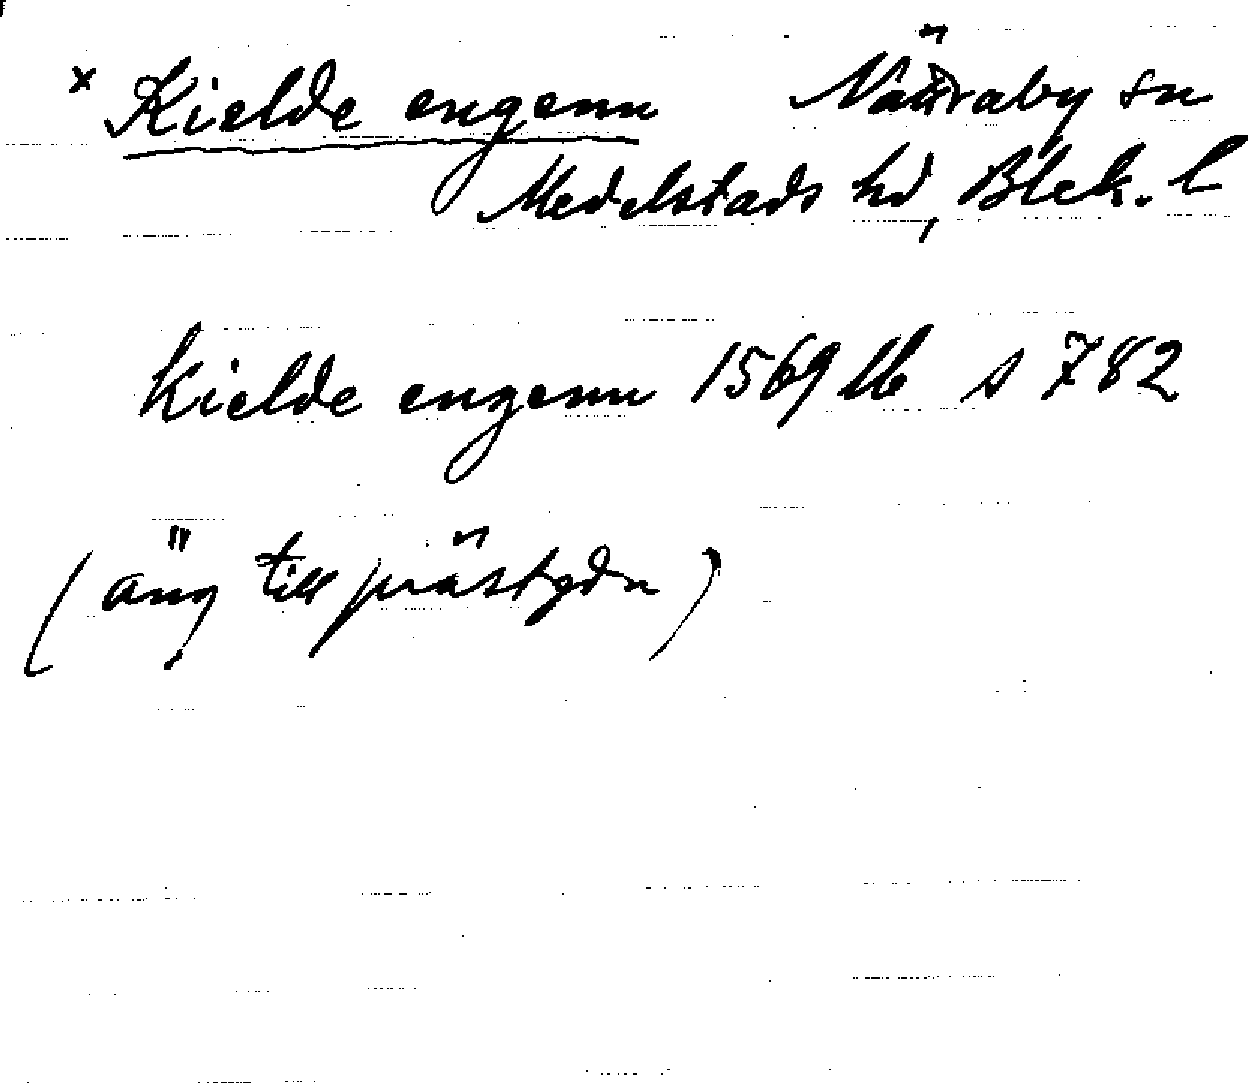 x Kielde engenn Nättraby sn
Medelstads hd, Blek. l
Kielde engenn 1569 lb s 782
(äng till prästgdn)